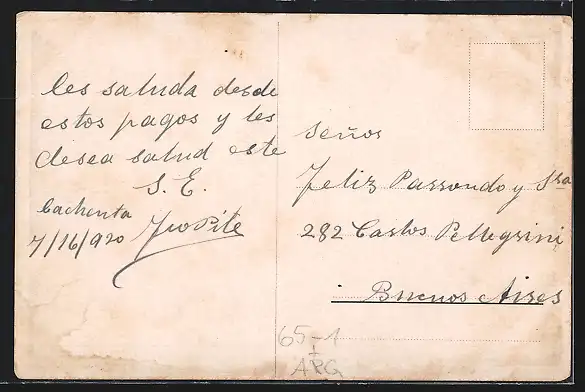 les saluda desde
estos pagos y les
desea salud este
S. E.
Cachenta
7/16/920
Señor
Feliz Parrondo y Sra
282 Carlos Pellegrini
Buenos Aires
65-1
ARG